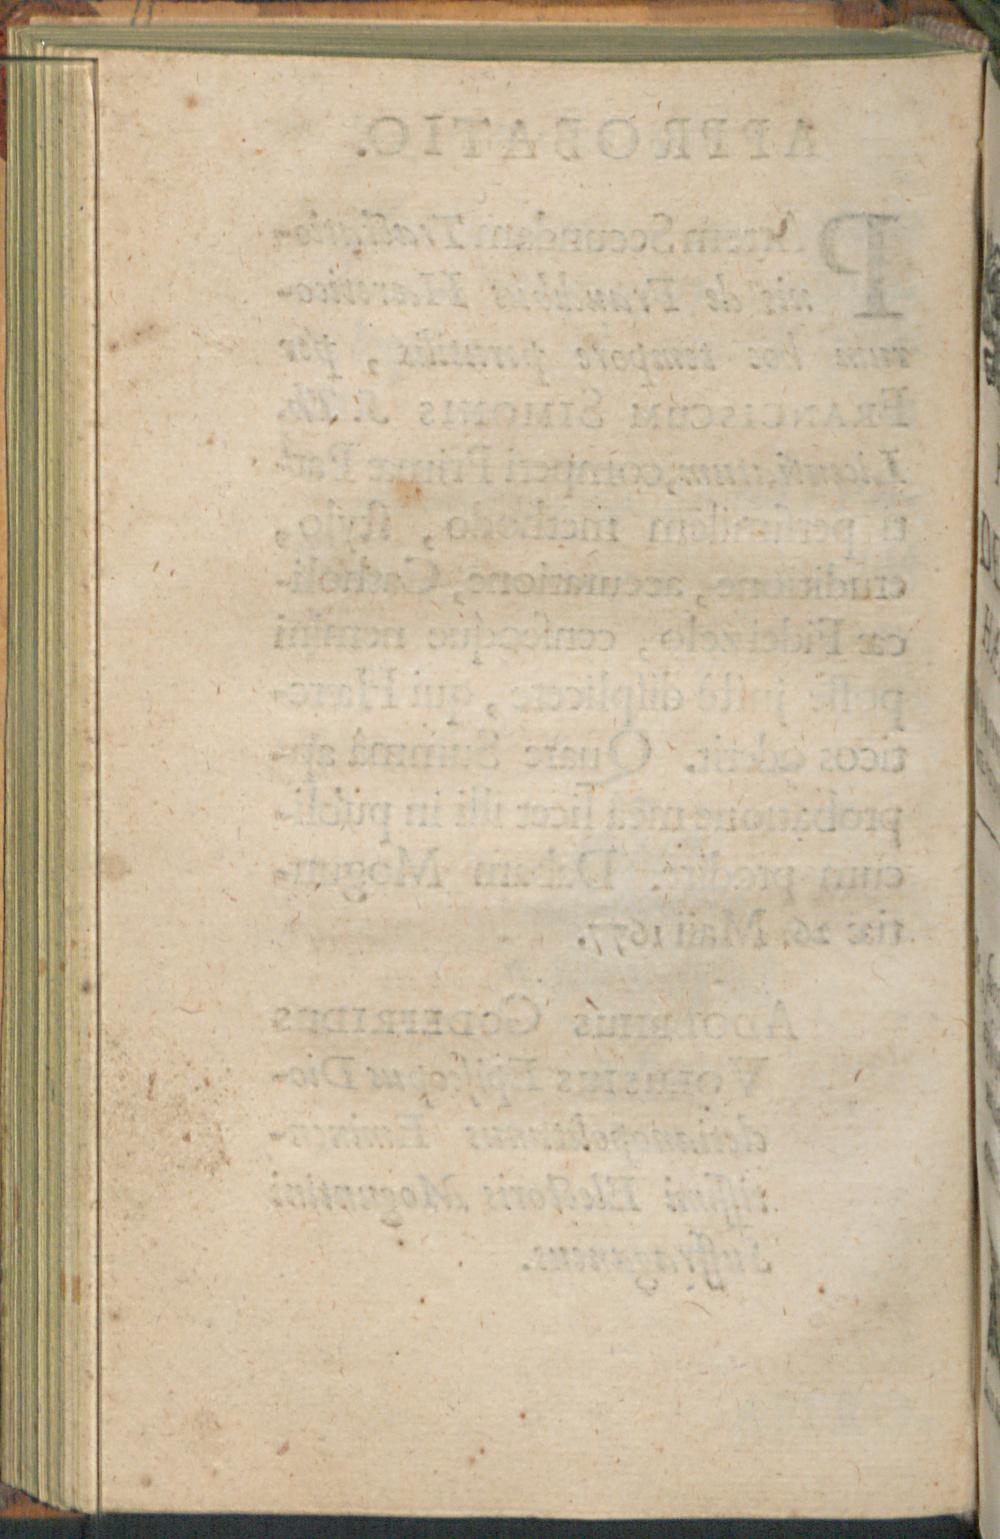 APPROBATIO.
PArtem Secundam Tractatio-
nis de Fraudibus Hæretico-
rum hoc tempore per
FRANCISCUM SIMONIS S. Th.
Licentiatum, comperi Primæ Par-
ti persimilem methodo, stylo,
eruditione, accuratione, Catholi-
cæ Fidei zelo, censeoque nemini
posse justè displicere, qui Hære-
ticos oderit. Quare Summâ ap-
probatione meâ licet illi in publi-
cum prodire. Dabam Mogun-
tiæ 26. Maii 1677.
ADOLPHUS GODEFRIDUS
VOLUSIUS Episcopus Dio-
cletianopolitanus Eminen-
tissimi Electoris Moguntini
Suffraganeus.